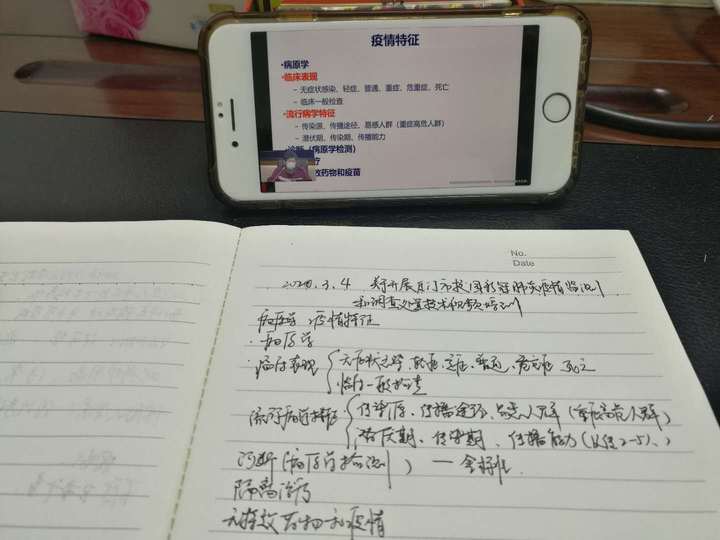 疫情特征
•病原学
•临床表现
– 无症状感染、轻症、普通、重症、危重症、死亡
– 临床一般检查
•流行病学特征
– 传染源、传播途径、易感人群（重症高危人群）
– 潜伏期、传染期、传播能力
诊断（病原学检测）
疗
效药物和疫苗
No.
Date
2020.3.4 关于开展我门市校园新冠肺炎疫情监测
和调查处置技术视频培训
疫情特征
·病原学
临床表现 无症状感染、轻症、重症、普通、危重症 死亡
临床一般检查
流行病学特征 传染源、传播途径、易感人群（重症高危人群）
潜伏期、传染期、传播能力
诊断（病原学检测）—金标准
隔离治疗
无特效药物和疫情